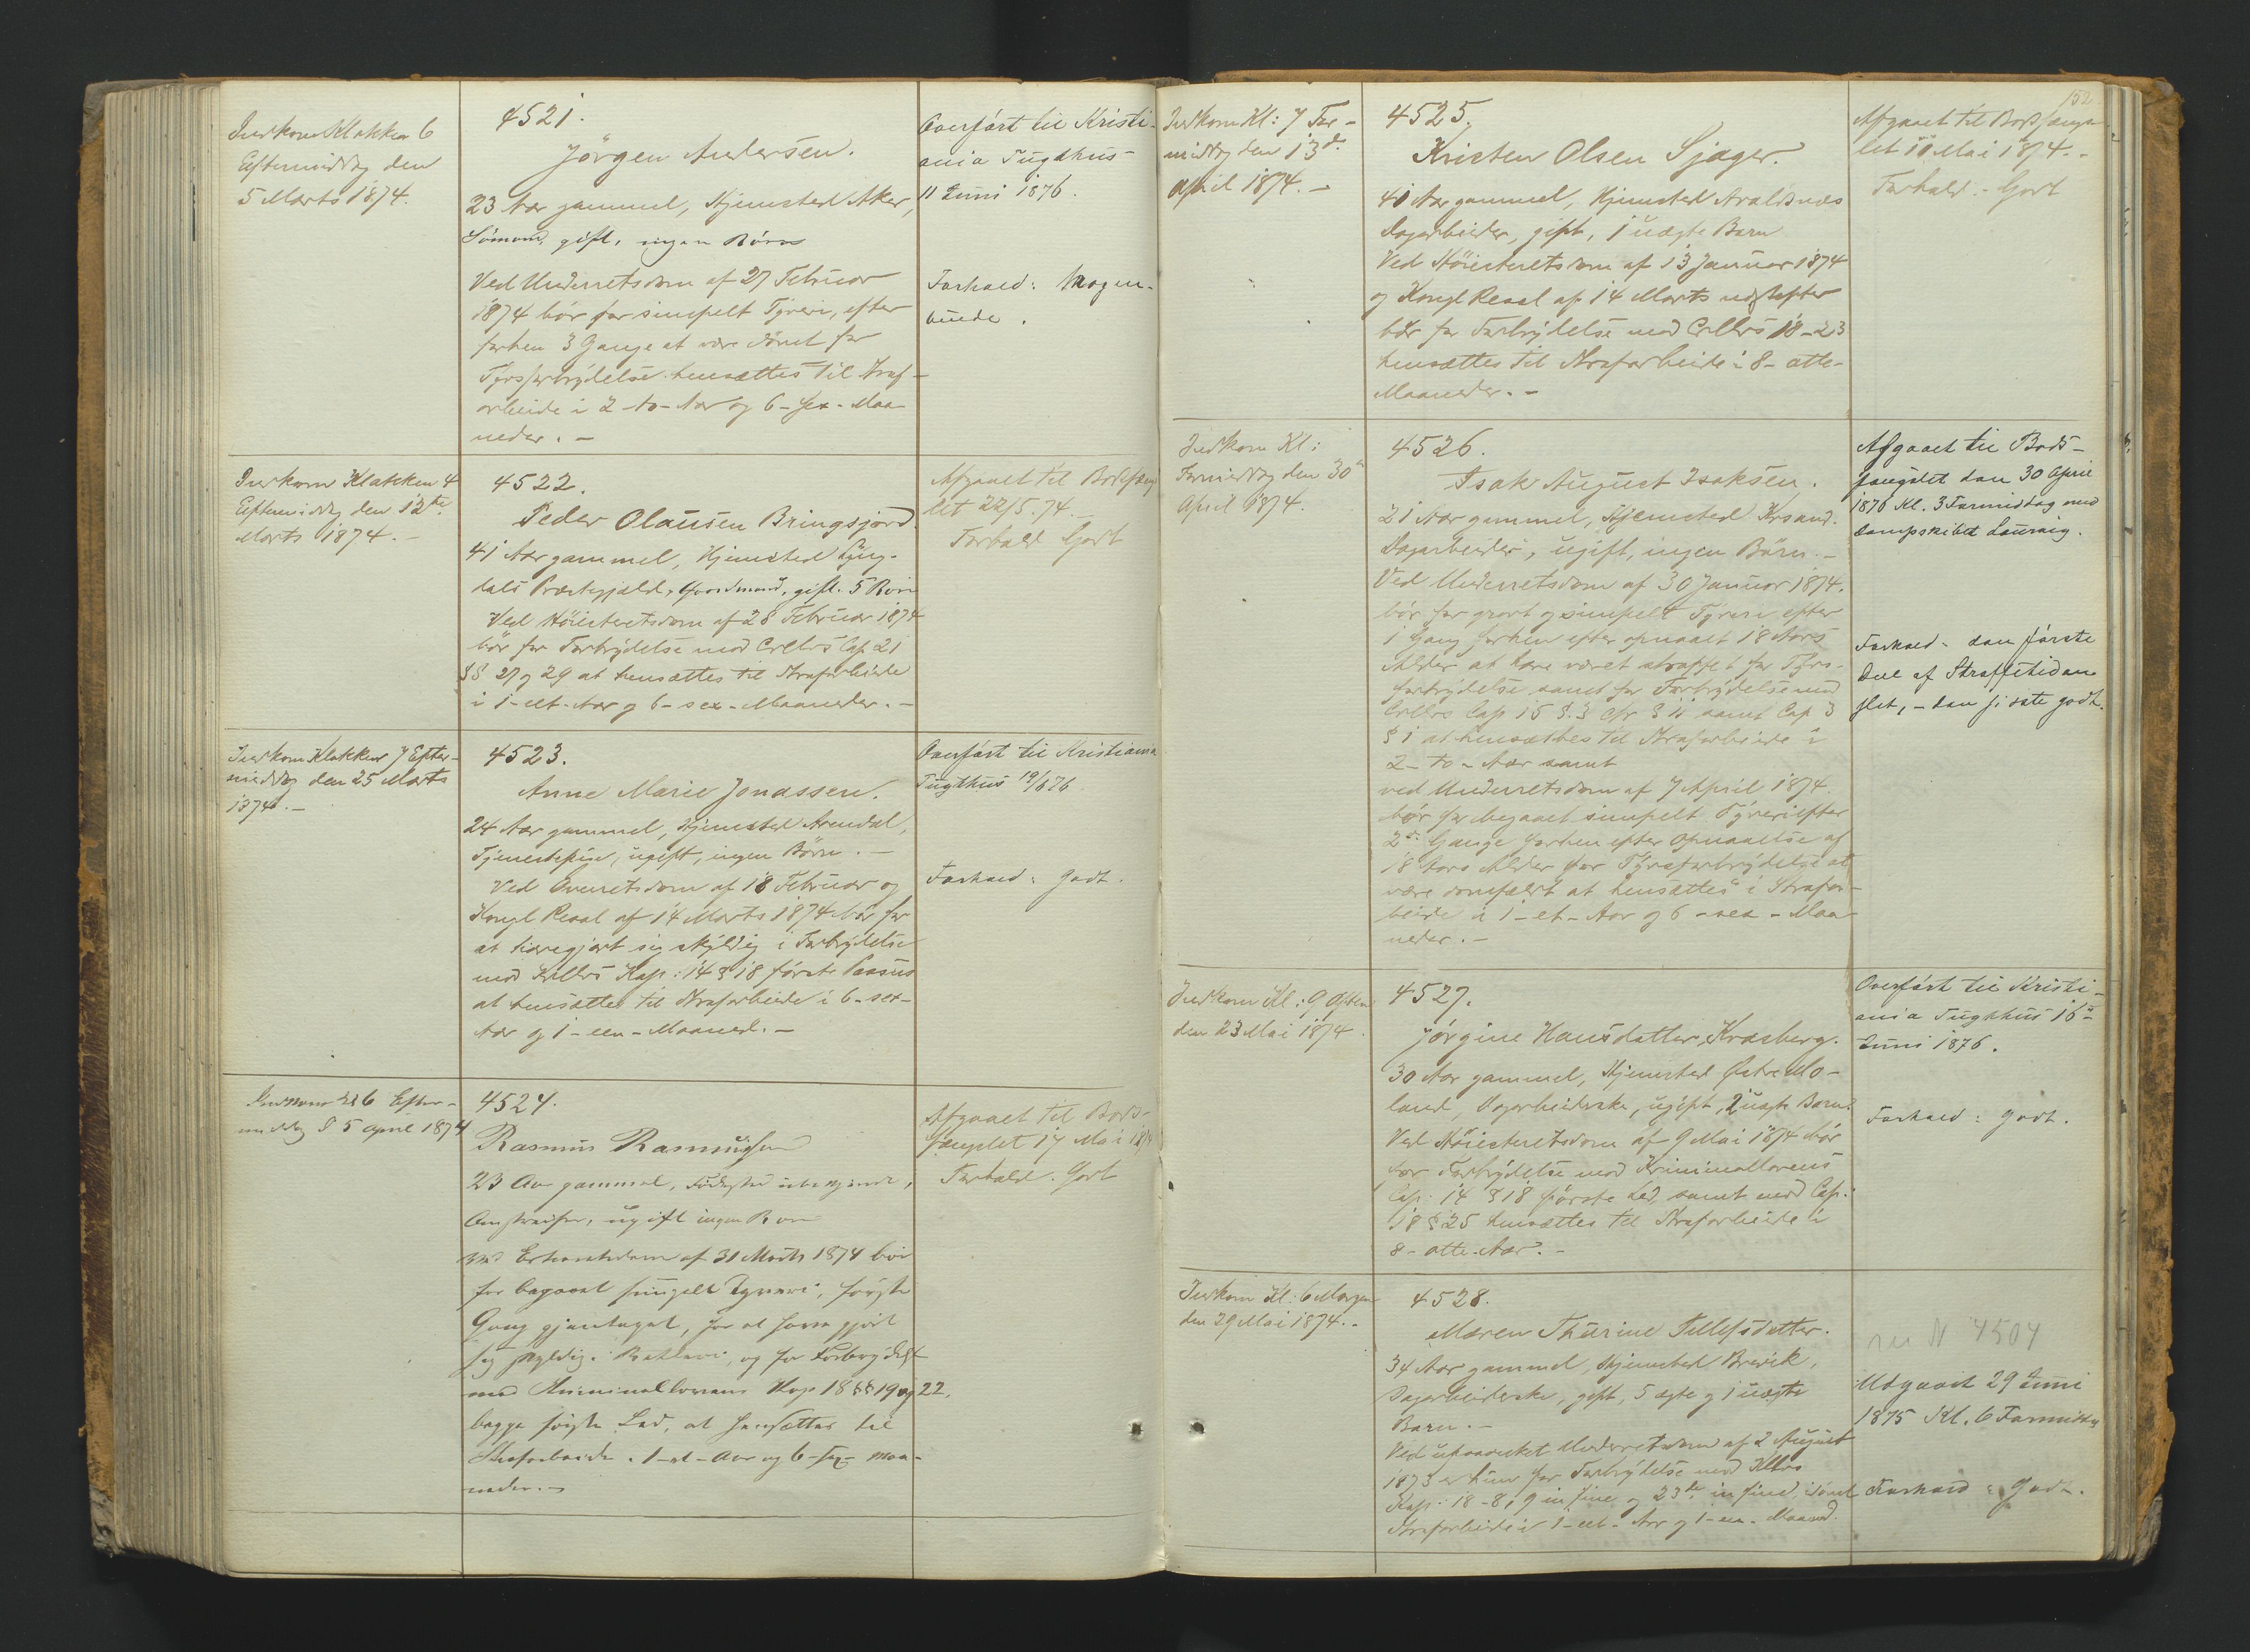 Indkom Klokken 6
Eftermiddag den
5 Marts 1874.
4521.
Jörgen Andersen.
23 Aar gammel, Hjemsted Aker,
Sömand, gift, ingen Börn
Ved Underretsdom af 27 Februar
1874 bör for simpelt Tyveri, efter
forhen 3 Gange at være dömt for
Tyvsforbrydelse hensættes til Straf-
arbeide i 2 - to - Aar og 6 - sex - Maa
neder. -
Overfört til Kristi-
ania Tugthus
11 Juni 1876.
Forhold:
Indkom Klokken 4
Eftermiddag den 12te
Marts 1874. -
4522.
Peder Olausen Bringsjord.
41 Aar gammel, Hjemsted Lyng-
dals Præstegjæld, Gaardmand, gift. 5 Börn
Ved Höiesteretsdom af 28 Februar 1874
bör for Forbrydelse mod Crllvs Cap 21
§§ 27 og 29 at hensættes til Strafarbeide
i 1 - et - Aar og 6 - sex - Maaneder. -
Afgaaet til Bodsfæng
let 22/5. 74. -
Forhold Godt
Indkom Klokken 7 Efter-
middag den 25 Marts
1874. -
4523.
Anne Marie Jonassen.
24 Aar gammel, Hjemsted Arendal,
Tjenestepige, ugift, ingen Börn. -
Ved Overretsdom af 18 Februar og
Kongl Resol af 14 Marts 1874 bör for
at have gjort sig skyldig i Forbrydelse
mod Krllvs Kap: 14 § 18 förste Passus
at hensættes til Strafarbeide i 6 - sex -
Aar og 1 - een - Maaned. -
Overfört til Kristiania
Tugthus 19/6 76
Forhold: Godt.
Indkom Kl 6 Efter-
middag d 5 April 1874
4524.
Rasmus Rasmussen
23 Aar gammel, Födested ubekjendt,
Omstreifer, ugift ingen Börn
Ved Extraretsdom af 31 Marts 1874 bör
for begaaet simpelt Tyveri, förste
Gang gjentaget, for at have gjort
sig skyldig i Betleri, og for Forbrydelse
mod Kriminallovens Kap 18 §§ 19 og 22,
begge förste Led, at hensættes til
Strafarbeide i 1 - et - Aar og 6 - sex - Maa-
neder. -
Afgaaet til Bods-
fænglet 17 Mai 1874
Forhold. Godt
152
Indkom Kl: 7 For-
middag den 13de
April 1874. -
4525.
Kristen Olsen Sjager.
41 Aar gammel, Hjemsted Avaldsnæs
Dagarbeider, gift, 1 uægte Barn
Ved Höiesteretsdom af 13 Januar 1874
og Kongl Resol af 14 Marts næstefter
bör for Forbrydelse mod Crllvs 18 - 23
hensættes til Strafarbeide i 8 - otte -
Maaneder. -
Afgaaet til Bodsfæng
let 10 Mai 1874. -
Forhold. - Godt
Indkom Kl:
Formiddag den 30te
April 1874.
4526.
Isak August Isaksen.
21 Aar gammel, Hjemsted Krsand.
Dagarbeider, ugift, ingen Börn. -
Ved Underretsdom af 30 Januar 1874.
bör for grovt og simpelt Tyveri efter
1 Gang forhen efter opnaaet 18 Aars
Alder at have været straffet for Tyvs-
forbrydelse samt for Forbrydelse mod
Crllvs Cap 15 § 3 cfr § 11 samt Cap 3
§ 1 at hensættes til Strafarbeide i
2 - to - Aar samt
ved Underretsdom af 7 April 1874.
bör for begaaet simpelt Tyveri efter
2de Gange forhen efter opnaaelse af
18 Aars Alder for Tyvsforbrydelse at
være domfældt at hensættes i Strafar-
beide i 1 - et - Aar og 6 - sex - Maa
neder. -
Afgaaet til Bods-
fænglet den 30 April
1876 Kl. 3 Formiddag med
Dampskibet Lourvig.
Forhold - den förste
Deel af Straffetiden
slet, - den sidste godt.
Indkom Kl: 9 Aften
den 23 Mai 1874.
4527.
Jörgine Hansdatter Kraaberg.
30 Aar gammel, Hjemsted Østre Mo-
land, Dagarbeiderske, ugift, 2 uægte Börn.
Ved Höiesteretsdom af 9 Mai 1874 bör
for Forbrydelse mod Kriminallovens
Cap: 14 § 18 förste Led, samt mod Cap:
18 § 25 hensættes til Strafarbeide i
8 - otte - Aar. -
Overfört til Kristi-
ania Tugthus 16de
Juni 1876.
Forhold: Godt.
Indkom Kl: 6 Morgen
den 29 Mai 1874. -
4528.
Maren Thurine Tellefsdatter.
34 Aar gammel, Hjemsted Brevik,
Dagarbeiderske, gift, 5 ægte og 1 uægte
Barn. -
Ved upaaanket Underretsdom af 2 August
1873 er hun for Forbrydelse mod Kllvs
Kap: 18 - 8, 9 in fine og 23de in fine, idömt
Strafarbeide i 1 - et - Aar og 1 - een - Maaned.
N 4504
Udgaaet 29 Juni
1875 Kl. 6 Formiddag
Forhold: Godt.